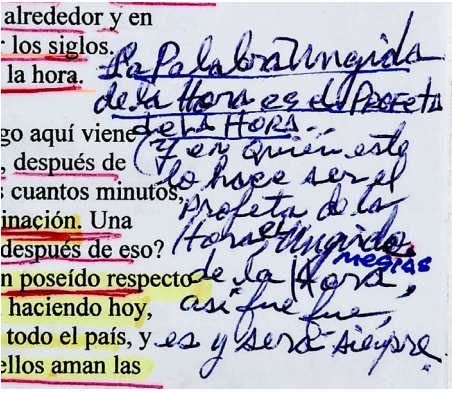 alrededor y en
los siglos.
la hora.
go aquí viene
, después de
s cuantos minutos,
inación. Una
después de eso?
n poseído respecto
haciendo hoy,
todo el país, y
ellos aman las
La Palabra Ungida
de la Hora es el PROFETA
de la HORA...
(Y en quién este
lo hace ser el
Profeta de la
Hora, el Ungido
MESIAS
de la Hora,
así fue fue,
es y será siempre.